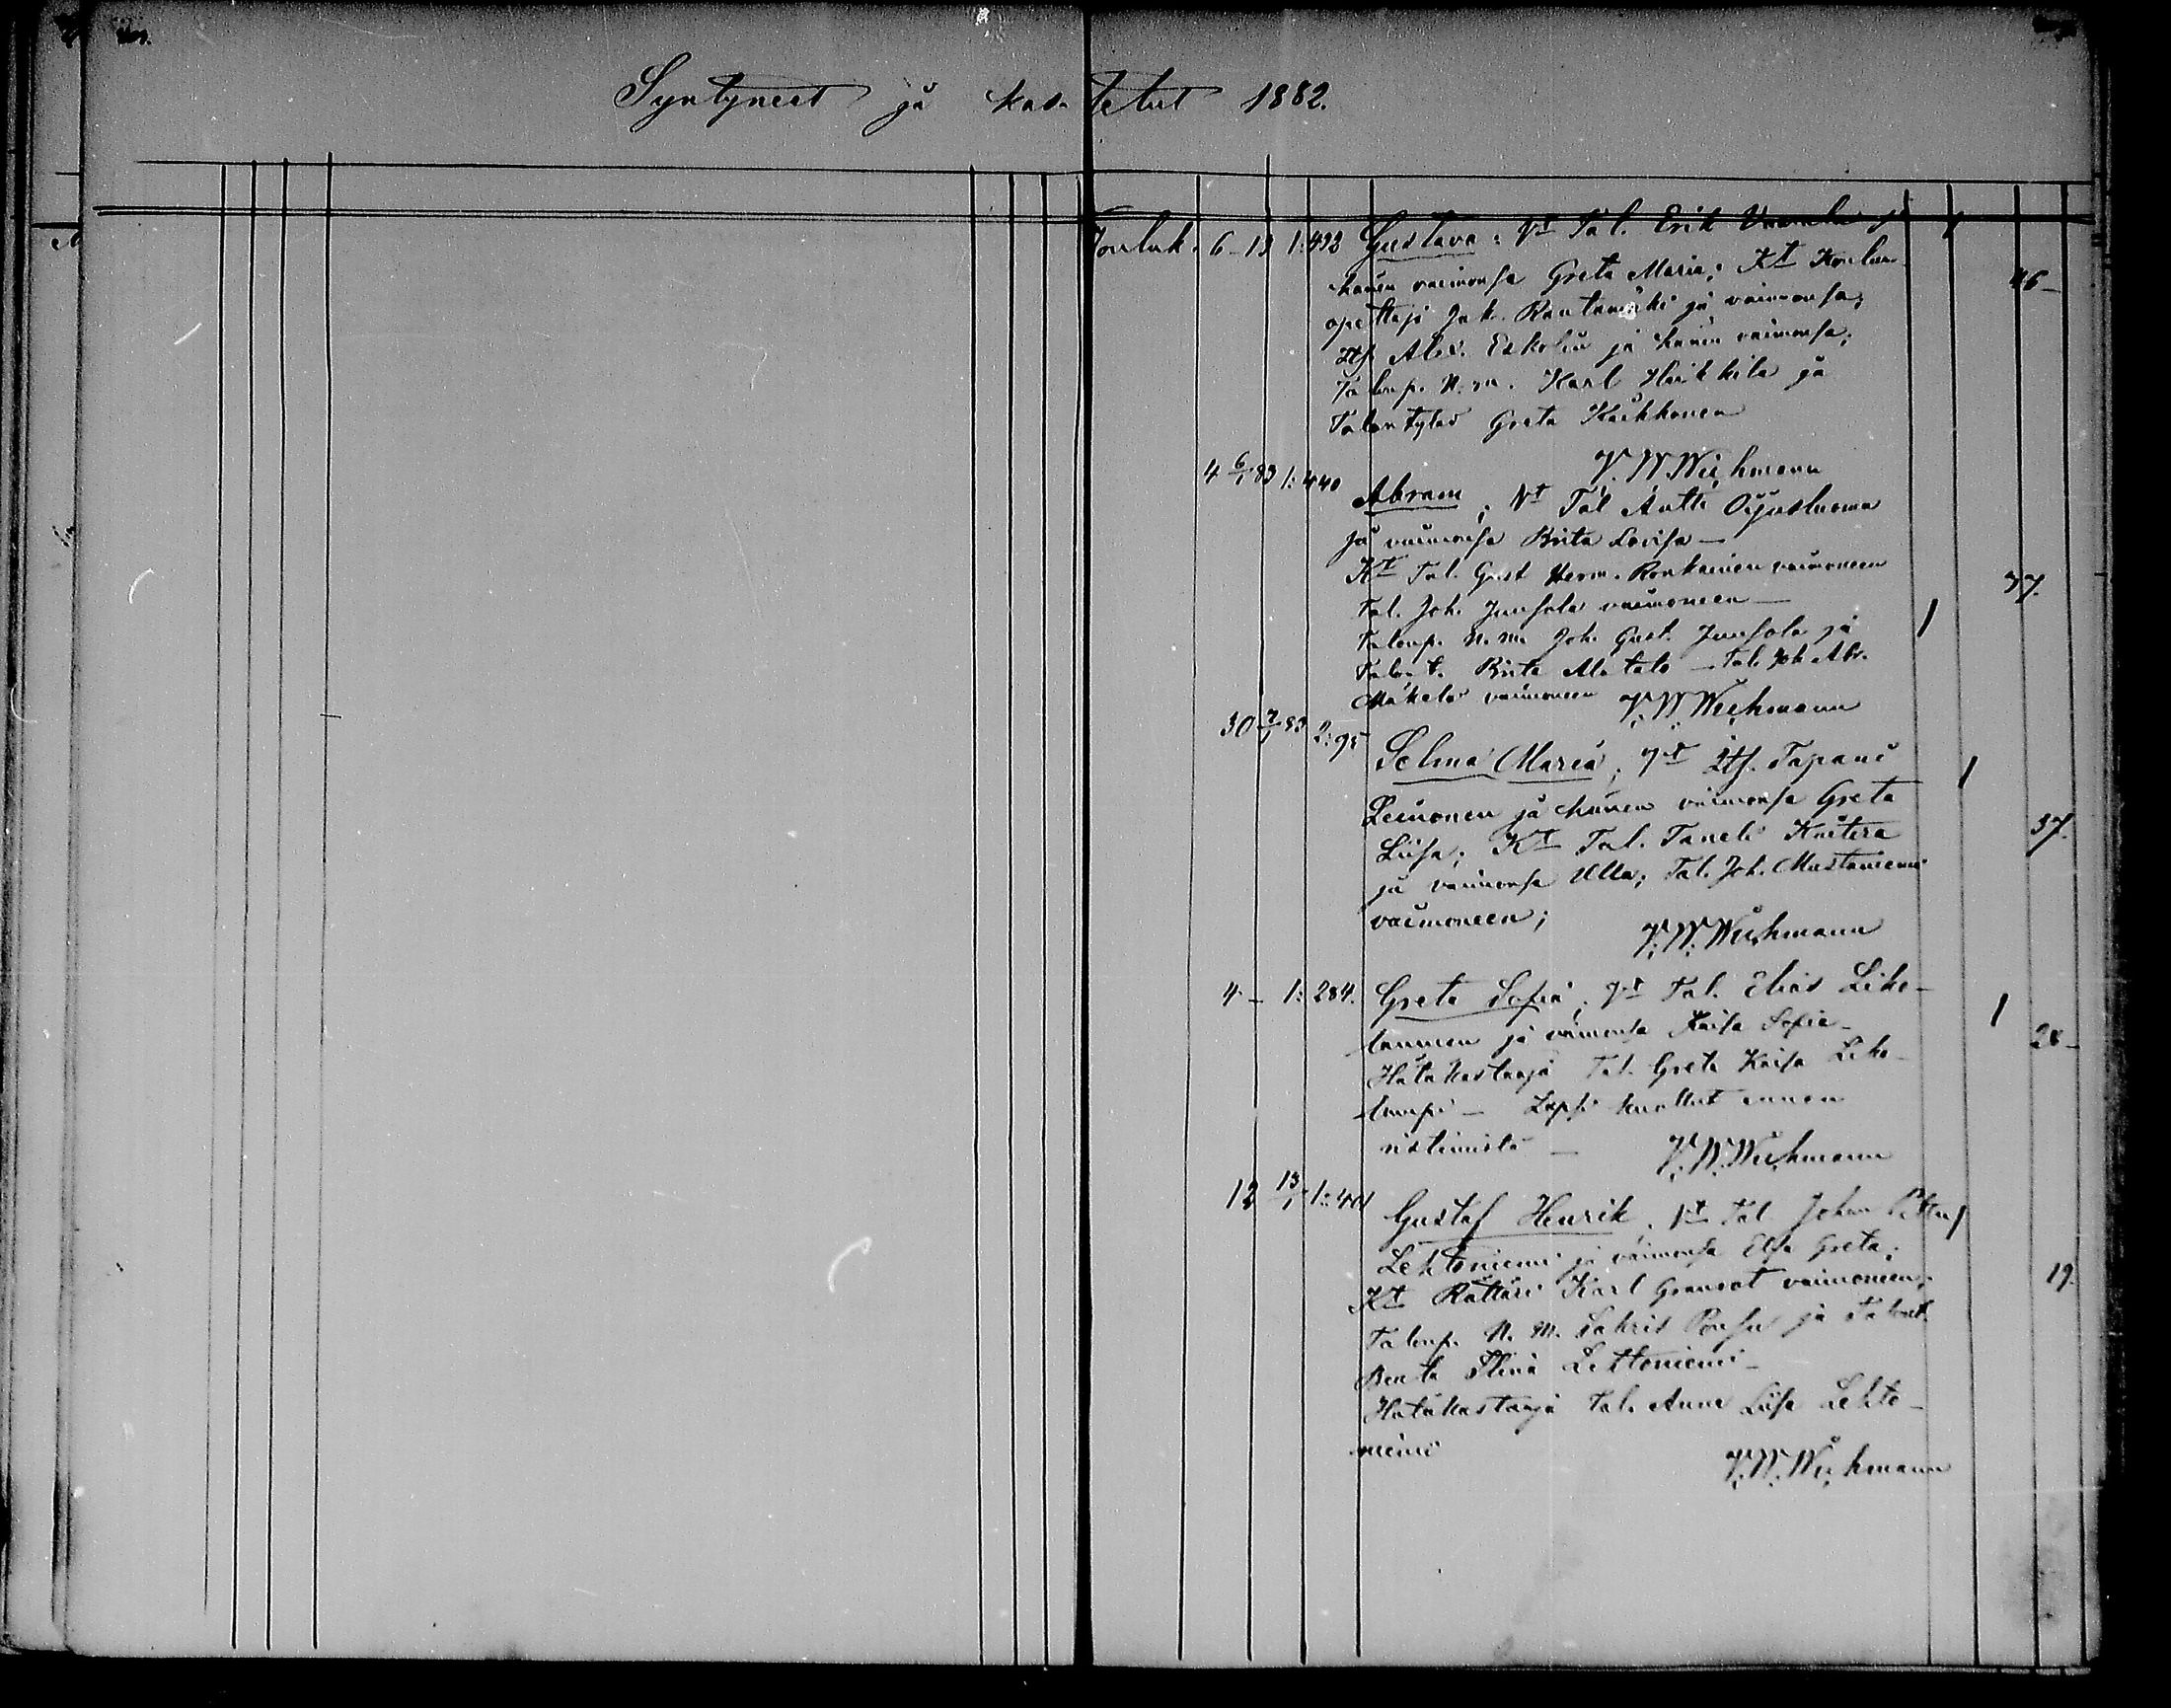 Syntyneet ja kastetut 1882.
Jouluk. 6 - 13 1:492 Gustava: Vt Tal. Erik
hänen vaimonsa Greta Maria; Kt Koulun- 46-
opettaja Jak. Rantamäki ja vaimonsa;
Its Alex. Eskolin ja hänen vaimonsa;
Talonp. N. m. Karl Heikkilä ja
Talontytär Greta Kaikkonen
V. W. Wichmann
4 6/1 83 1:440 Abram; Vt Tal Antti Ojustuoma
ja vaimonsa Brita Lovisa -
Kt Tal. Gust Herm. Ronkainen vaimoneen
Tal. Joh. Junsola vaimoneen - 77.
Talonp. N. m. Joh. Gust. Junsola ja
Talont. Brita Alatalo - Tal. Joh Abr.
Mäkelä vaimoneen V. W. Wichmann
30 7/1 83 2:95 Selma Maria; Vt Its. Tapani
Leinonen ja hänen vaimonsa Greta
Liisa; Kt Tal. Taneli Kaitera 37.
ja vaimonsa Ulla; Tal. Joh. Mustaniemi
vaimoneen; V. W. Wichmann
4 - 1:284. Greta Sofia; Vt Tal. Elias Like-
ja vaimonsa Kaisa Sofia - 28-
Hätäkastaaja Tal. Greta Kaisa
- Lapsi kuollut ennen
ristimistä - V. W. Wichmann
12 13/1 1:401 Gustaf Henrik, Vt Tal. Johan
Lehtoniemi ja vaimonsa Elsa Greta;
Kt Rättäri Karl Granrot vaimoneen; 19.
Talonp. N. m. Sakris ja Talont.
Stina Lehtoniemi -
Hätäkastaaja Tal. Anna Liisa Lehto-
niemi V. W. Wichmann